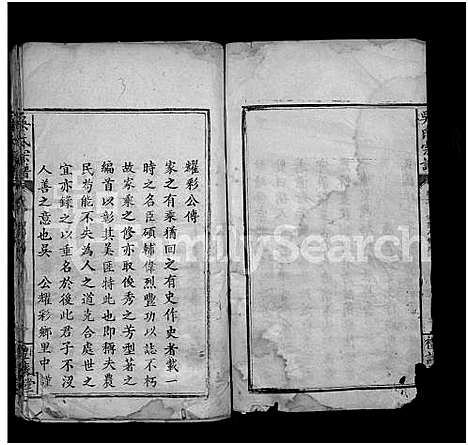 吳氏宗譜
耀彩公傳
家之有乘猶國之有史作史者載一
時之名臣碩輔偉烈豐功以誌不朽
故家乘之修亦取俊秀之芳型著之
編首以彰其美匪特此也即編夫農
民苟能不失為人之道克合處世之
宜亦錄之以垂名於後此君子不沒
人善之意也吳 公耀彩鄉里中謹
吳氏宗譜
FamilySearch